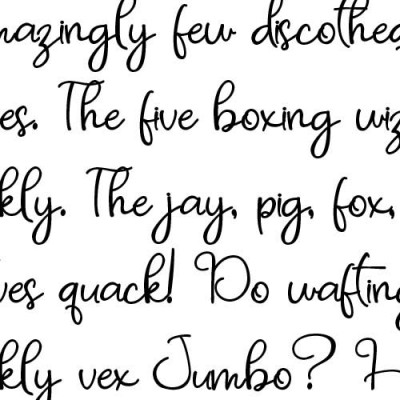 mazingly few discotheq
es. The five boxing wiz
kly. The jay, pig, fox,
ves quack! Do wafting
kly vex Jumbo? H